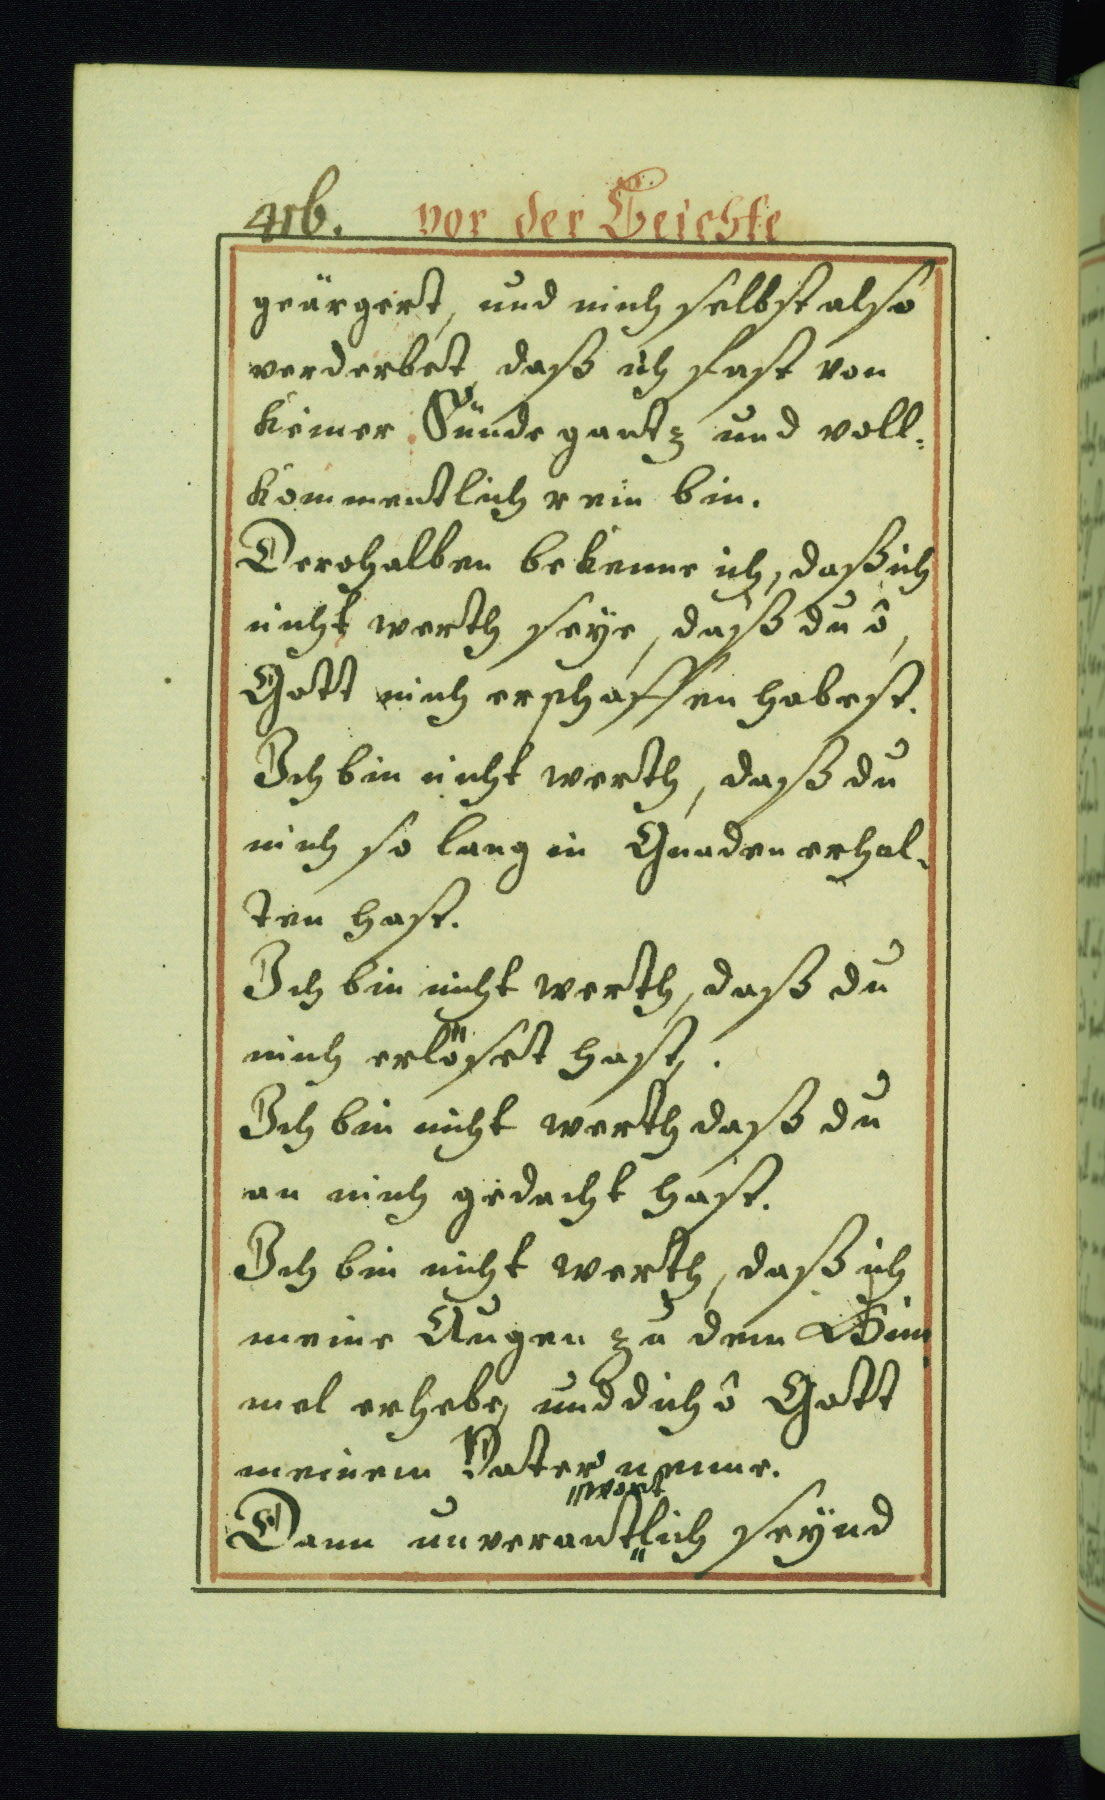 416. vor der Beichte
geärgert, und mich selbst also
verderbet, daß ich fast von
keiner Sünde gantz und voll⸗
kommentlich rein bin.
Derohalben bekenne ich, daß ich
nicht werth seÿe, daß du ô,
Gott mich erschaffen habest.
Ich bin nicht werth, daß du
mich so lang in Gnaden erhal⸗
ten hast.
Ich bin nicht werth, daß du
mich erlöset hast,.
Ich bin nicht werth daß du
an mich gedacht hast.
Ich bin nicht werth, daß ich
meine Augen zu dem Him⸗
mel erhebe, und dich ô Gott
meinem Vater nenne.
"wort
Dann unverant"lich seÿnd